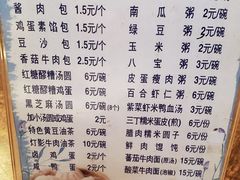 酱肉包 1.5元/个
鸡蛋素馅包 1.5元/个
豆沙包 1.5元/个
香菇牛肉包 2元/个
红糖醪糟汤圆 6元/碗
红糖醪糟鸡蛋 6元/碗
黑芝麻汤圆 6元/碗(8个)
加小汤圆或鸡蛋 2元
特色黄豆油茶 6元/碗
灯影牛肉油茶 6元/碗
卤鸡蛋 2元/个
咸鸭蛋 2元/个
南瓜粥 2元/碗
绿豆粥 2元/碗
玉米粥 2元/碗
八宝粥 3元/碗
皮蛋瘦肉粥 3元/碗
百合虾仁粥 3元/碗
紫菜虾米鸭血汤 3元/碗
三丁糯米蛋皮(煎) 6元/份
腊肉糯米圆子 6元/份
鲜肉馄饨 6元/碗
番茄牛肉面(原汤) 15元/碗
酸菜牛肉面 15元/碗